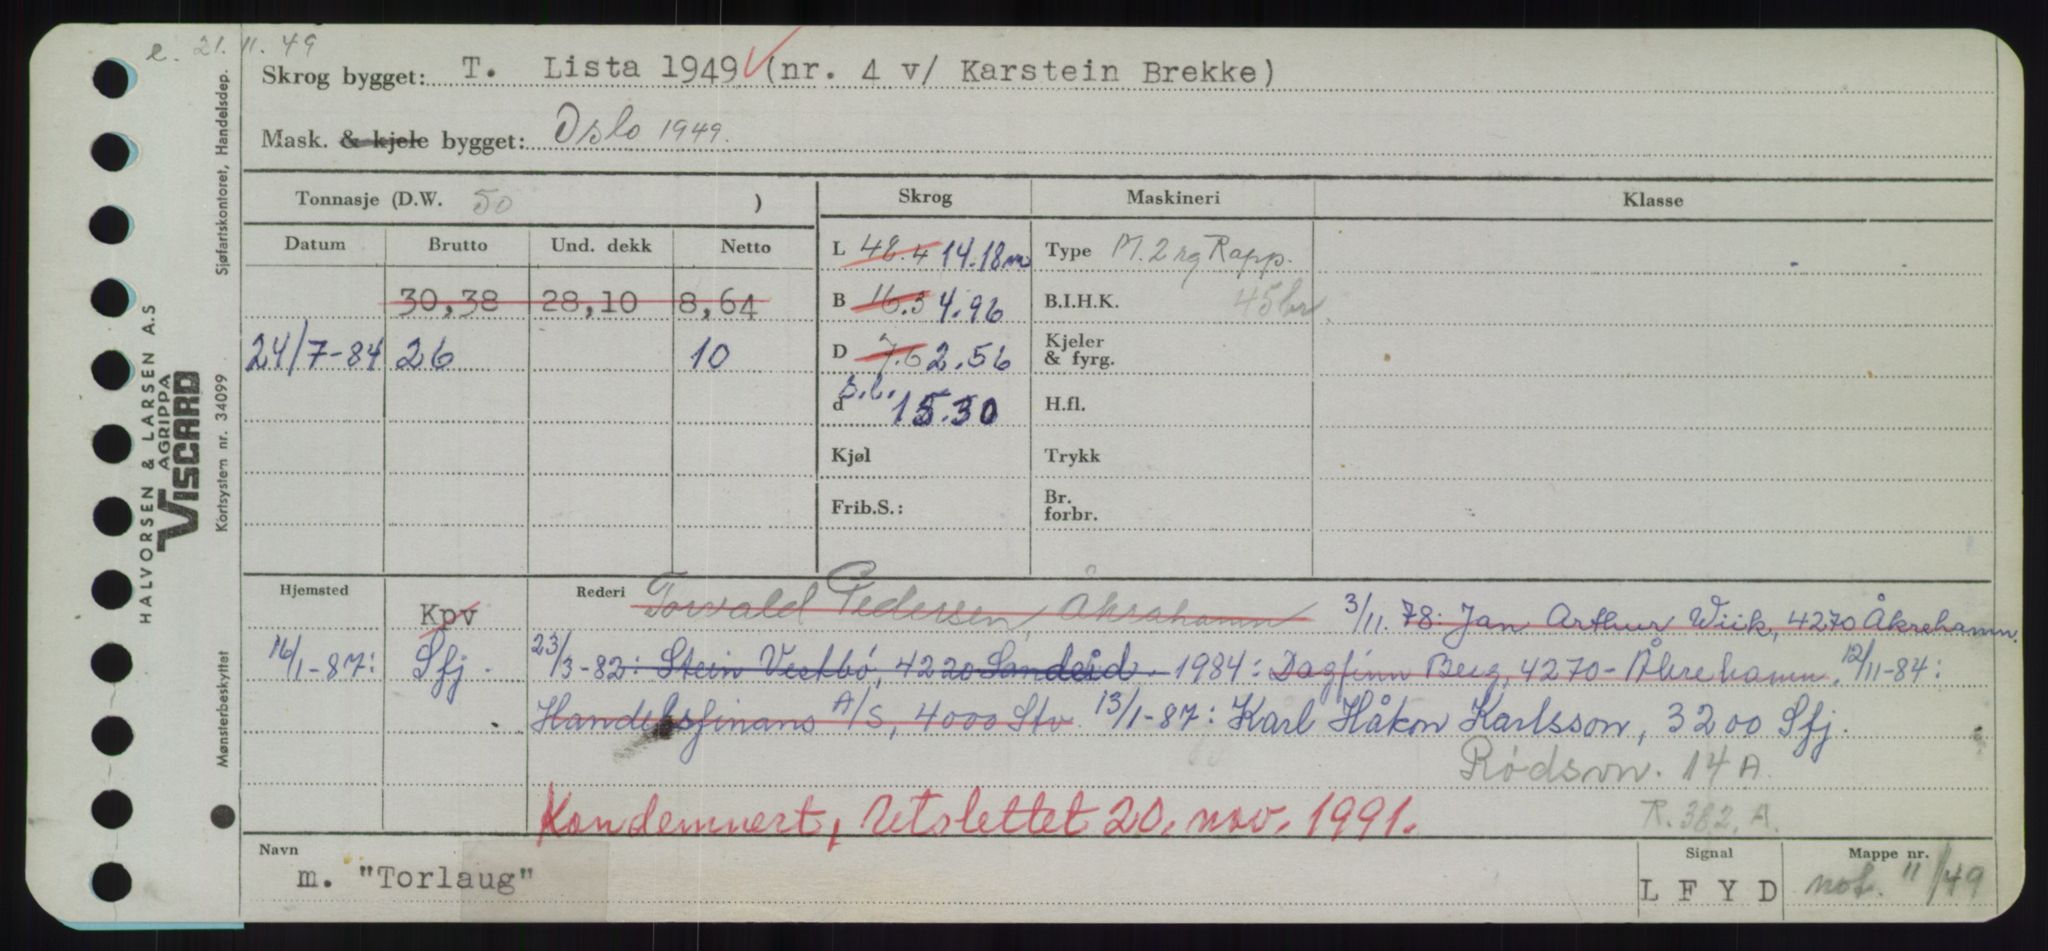 e. 21. 11. 49
Skrog bygget: T. Lista 1949 (nr. 4 v/ Karstein Brekke)
Mask. & kjele bygget: Oslo 1949.
Tonnasje (D.W. 50 )
Skrog
Maskineri
Klasse
Datum Brutto Und. dekk Netto
30,38 28,10 8,64
24/7-84 26 10
L 48.4 14.18m
B 16.3 4.96
D 7.6 2.56
d s.l. 15.30
Kjøl
Frib.S.:
Type M. 2 rg Rapp.
B.I.H.K. 45 br.
Kjeler
& fyrg.
H.fl.
Trykk
Br.
forbr.
Hjemsted Kpv
16/1-87: Sfj.
Rederi Torvald Pedersen, Åkrahamn 3/11. 78: Jan Arthur Wiik, 4270 Åkrehamn.
23/3-82: Stein Vestbö, 4220 Sandeid. 1984: Dagfinn Berg, 4270-Åkrehamn. 12/11-84:
Handelsfinans A/S, 4000 Stv. 13/1-87: Karl Håkon Karlsson, 3200 Sfj.
Rødsvn. 14 A
Kondemnert, Utslettet 20. nov. 1991.
R. 382. A.
Navn
m. "Torlaug"
Signal
L F Y D
Mappe nr.
not. 11/49
HALVORSEN & LARSEN A.S
AGRIPPA
VISCARD
Sjøfartskontoret, Handelsdep.
Kortsystem nr. 34099
Mønsterbeskyttet